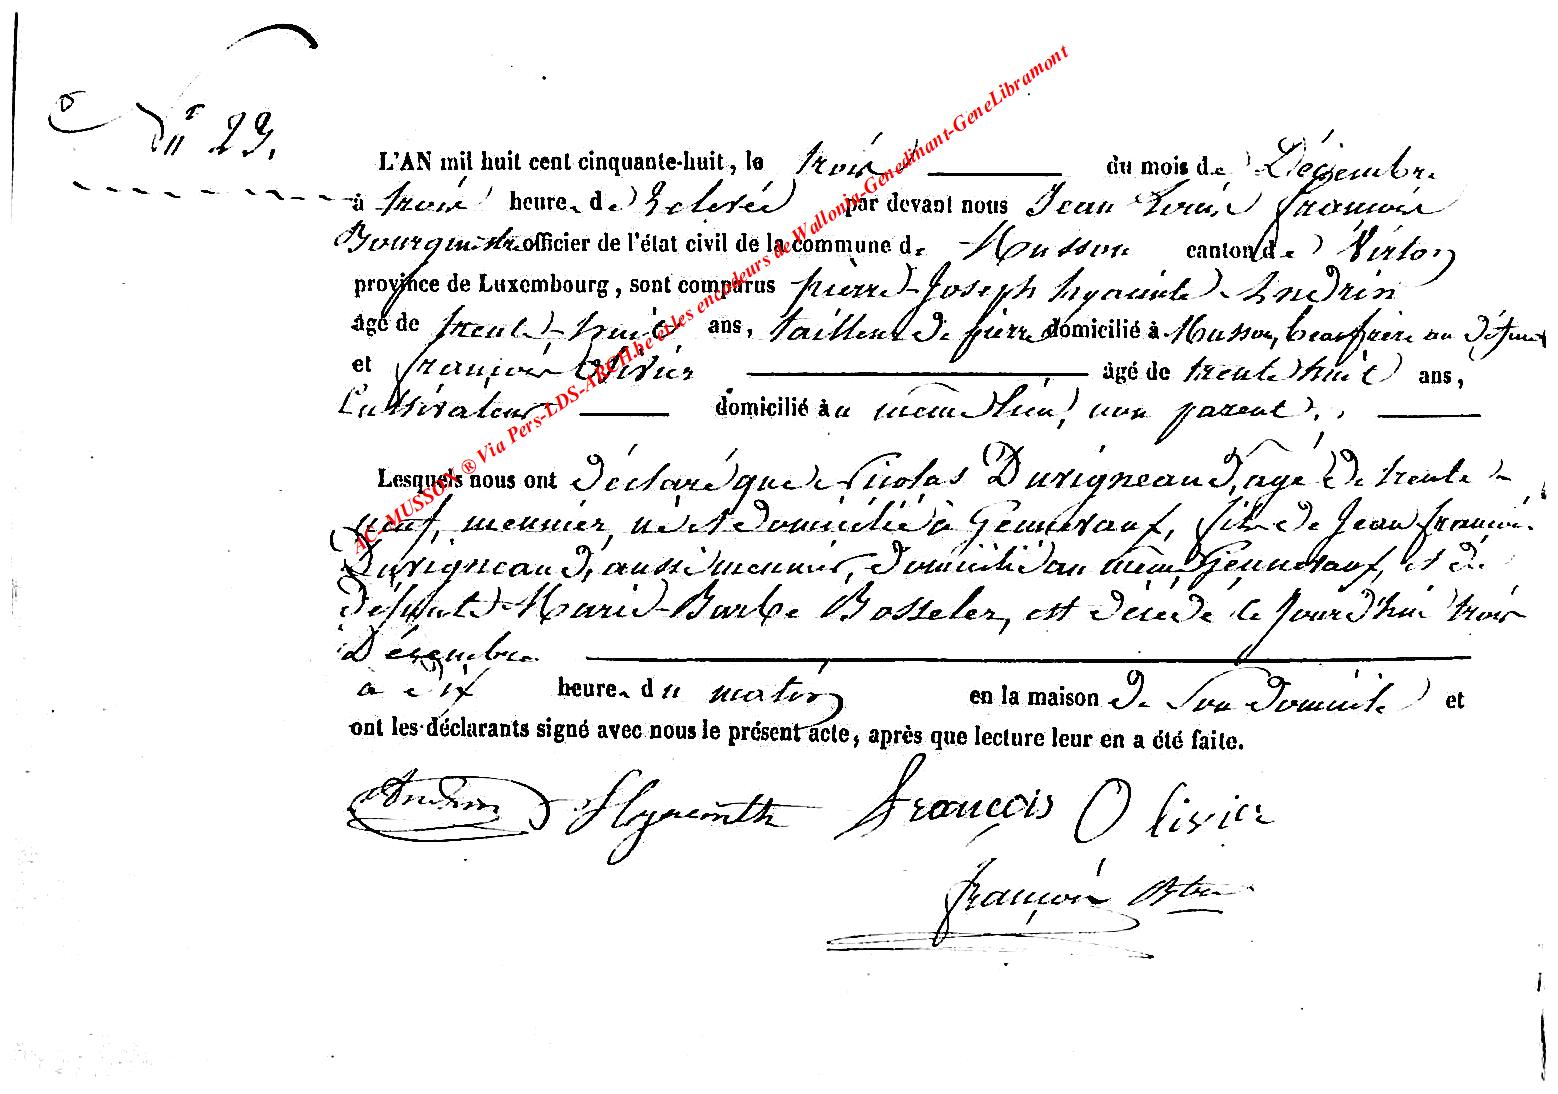 N° 29.
L'AN mil huit cent cinquante-huit, le trois du mois de Décembre
à trois heure de Relevée par devant nous Jean Louis françois
Bourgmestre officier de l'état civil de la commune de Musson canton de Virton
province de Luxembourg, sont comparus pierre-Joseph hyacinte Andrin
âgé de trente-huit ans, tailleur de pierre domicilié à Musson, beaufrère au défunt
et françois Olivier âgé de trente huit ans,
Cultivateur domicilié au même lieu, non parent.
Lesquels nous ont déclaré que Nicolas Duvigneaud, agé de trente
neuf, meunier, né et domicilié à Gennevaux, fils de Jean françois
Duvigneaud, aussi meunier, domicilié au même Gennevaux, et de
défunte Marie-Barbe Bosseler, est décédé ce jourd'hui trois
Décembre
à dix heure du matin en la maison de son domicile et
ont les déclarants signé avec nous le présent acte, après que lecture leur en a été faite.
Andrin Hyacinth François Olivier
françois
AC-MUSSON ® Via Pers-LDS-ARCH.be et les encodeurs de Wallonia-Genedinant-GeneLibramont